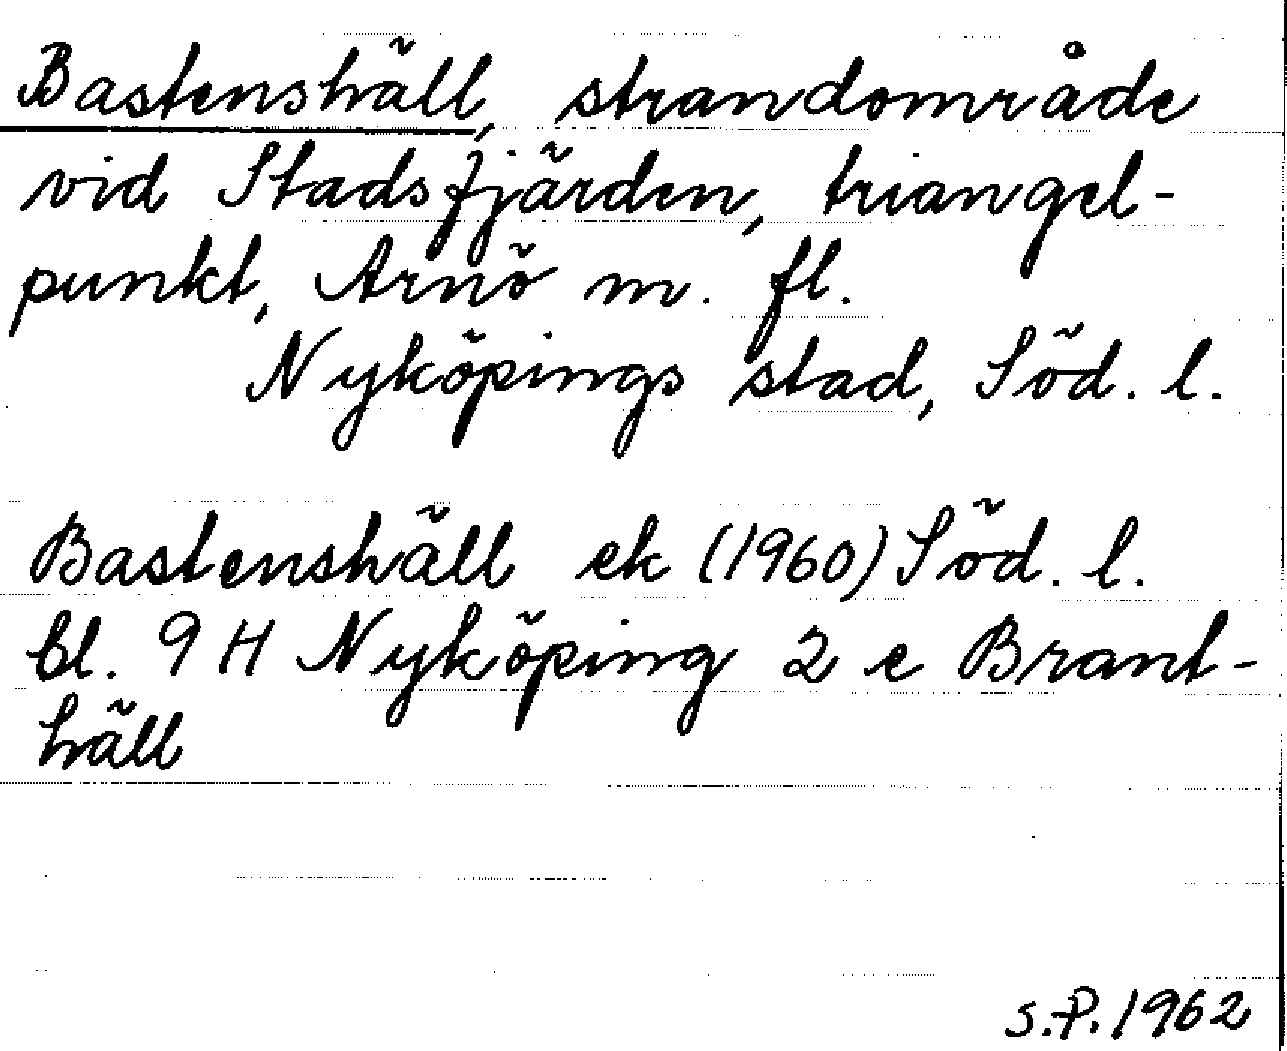 Bastenshäll, strandområde
vid Stadsfjärden, triangel-
punkt, Arnö m. fl.
Nyköpings stad, Söd. l.
Bastenshäll ek (1960) Söd. l.
bl. 9 H Nyköping 2 e Brant-
häll
S.P. 1962